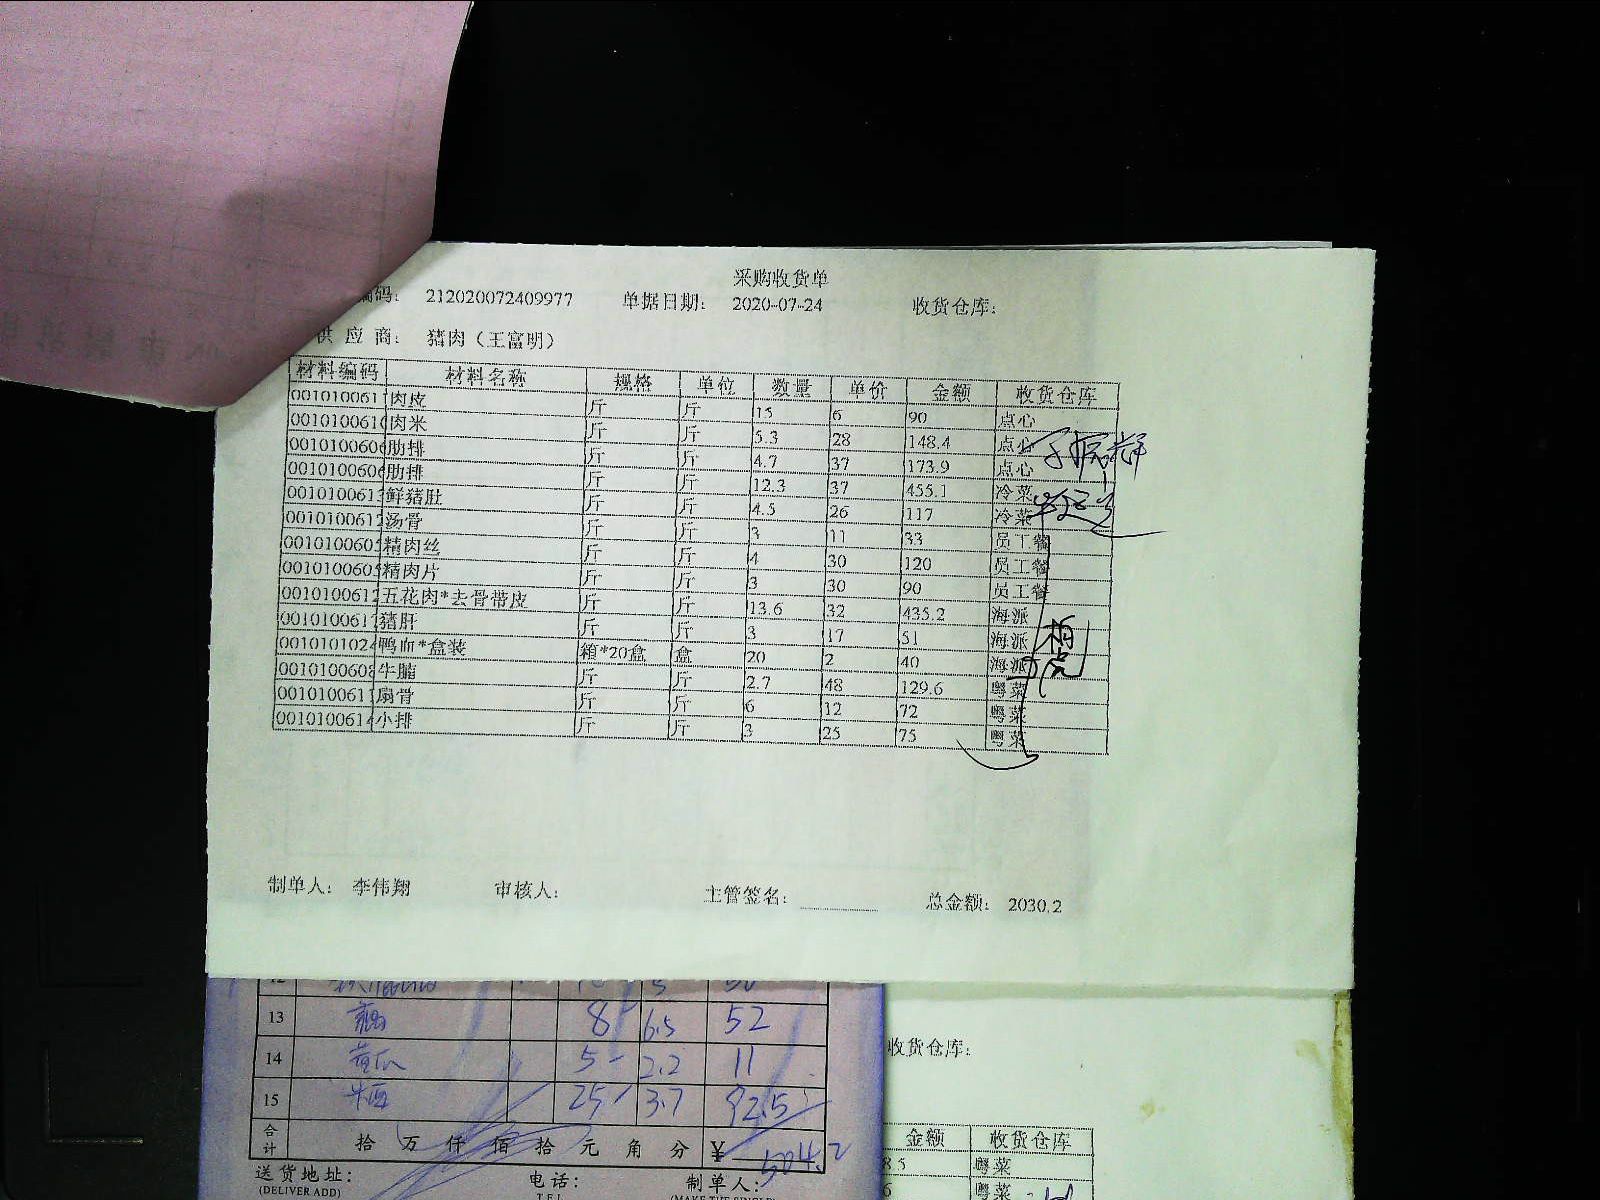 采购收货单
编码： 212020072409977 单据日期： 2020-07-24 收货仓库：
供 应 商： 猪肉（王富明）
材料编码 材料名称 规格 单位 数量 单价 金额 收货仓库
0010100611 肉皮 斤 斤 15 6 90 点心
001010061 肉米 斤 斤 5.3 28 148.4 点心
001010060 肋排 斤 斤 4.7 37 173.9 点心
001010060 肋排 斤 斤 12.3 37 455.1 冷菜
001010061 鲜猪肚 斤 斤 4.5 26 117 冷菜
001010061 汤骨 斤 斤 3 11 33 员工餐
001010060 精肉丝 斤 斤 4 30 120 员工餐
001010060 精肉片 斤 斤 3 30 90 员工餐
001010061 五花肉*去骨带皮 斤 斤 13.6 32 435.2 海派
001010061 猪肝 斤 斤 3 17 51 海派
001010102 鸭血*盒装 箱*20盒 盒 20 2 40 海派
001010060 牛腩 斤 斤 2.7 48 129.6 粤菜
001010061 扇骨 斤 斤 6 12 72 粤菜
001010061 小排 斤 斤 3 25 75 粤菜
制单人： 李伟翔 审核人： 主管签名： 总金额： 2030.2
13 8 6.5 52
收货仓库：
14 黄瓜 5 2.2 11
15 25 3.7 92.5
合计 拾 万 仟 佰 拾 元 角 分 ¥ 504.2
金额 收货仓库
85 粤菜
送货地址： 电话： 制单人：
(DELIVER ADD) TEL (MAKE THE SINGLE)
6 粤菜